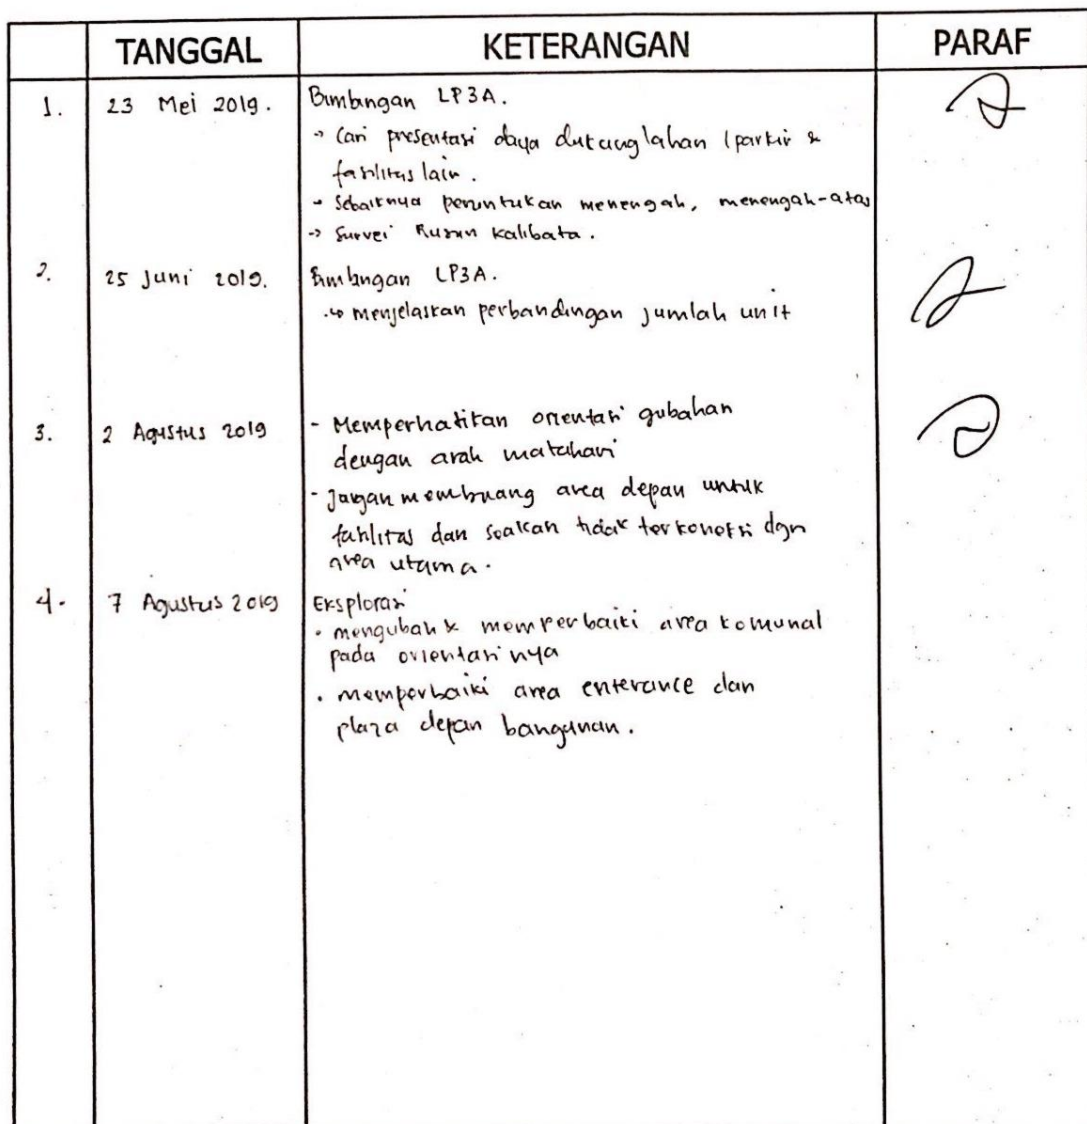 TANGGAL KETERANGAN PARAF
1. 23 Mei 2019. Bimbingan LP3A.
-> Cari presentasi daya dukung lahan (parkir &
fasilitas lain.
-> Sebaiknya peruntukan menengah, menengah-atas
-> Survei Rusun Kalibata.
2. 25 Juni 2019. Bimbingan LP3A.
-> menjelaskan perbandingan jumlah unit
3. 2 Agustus 2019 - Memperhatikan orientasi gubahan
dengan arah matahari
- Jangan membuang area depan untuk
fasilitas dan seakan tidak terkoneksi dgn
area utama.
4. 7 Agustus 2019 Eksplorasi
· mengubah & memperbaiki area komunal
pada orientasinya
· memperbaiki area enterance dan
plaza depan bangunan.